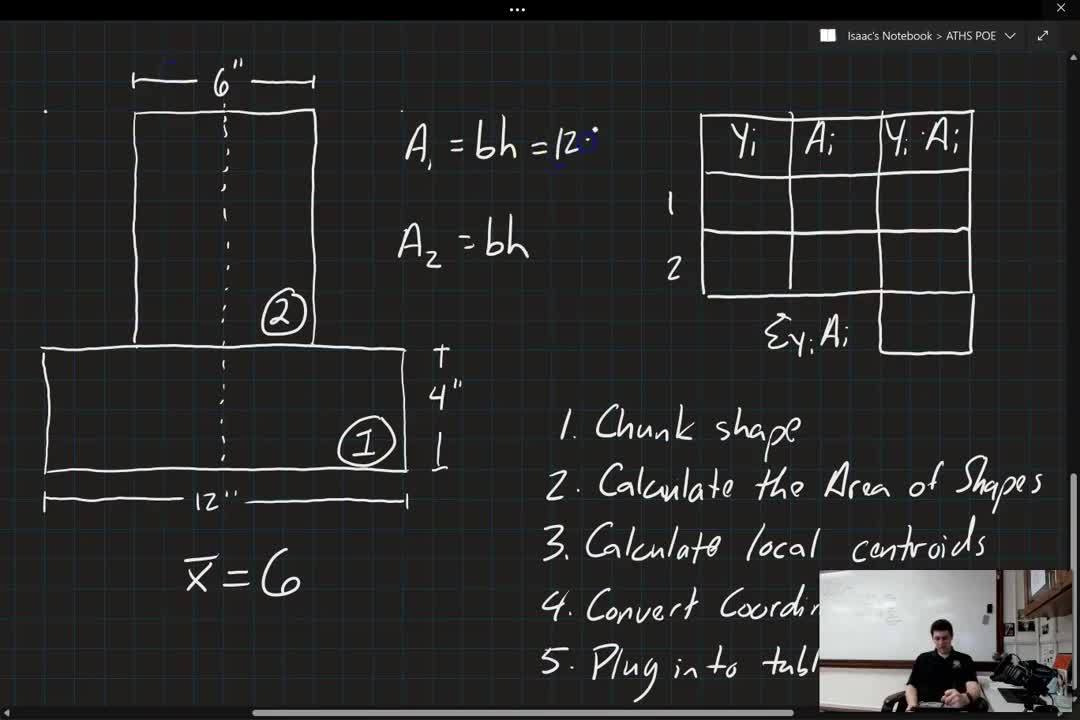 Isaac's Notebook > ATHS POE
6"
A₁ = bh = 12·
A₂ = bh
Yi Ai Yi·Ai
1
2
Σyi Ai
2
4"
1
12"
x̄ = 6
1. Chunk shape
2. Calculate the Area of Shapes
3. Calculate local centroids
4. Convert
5. Plug into